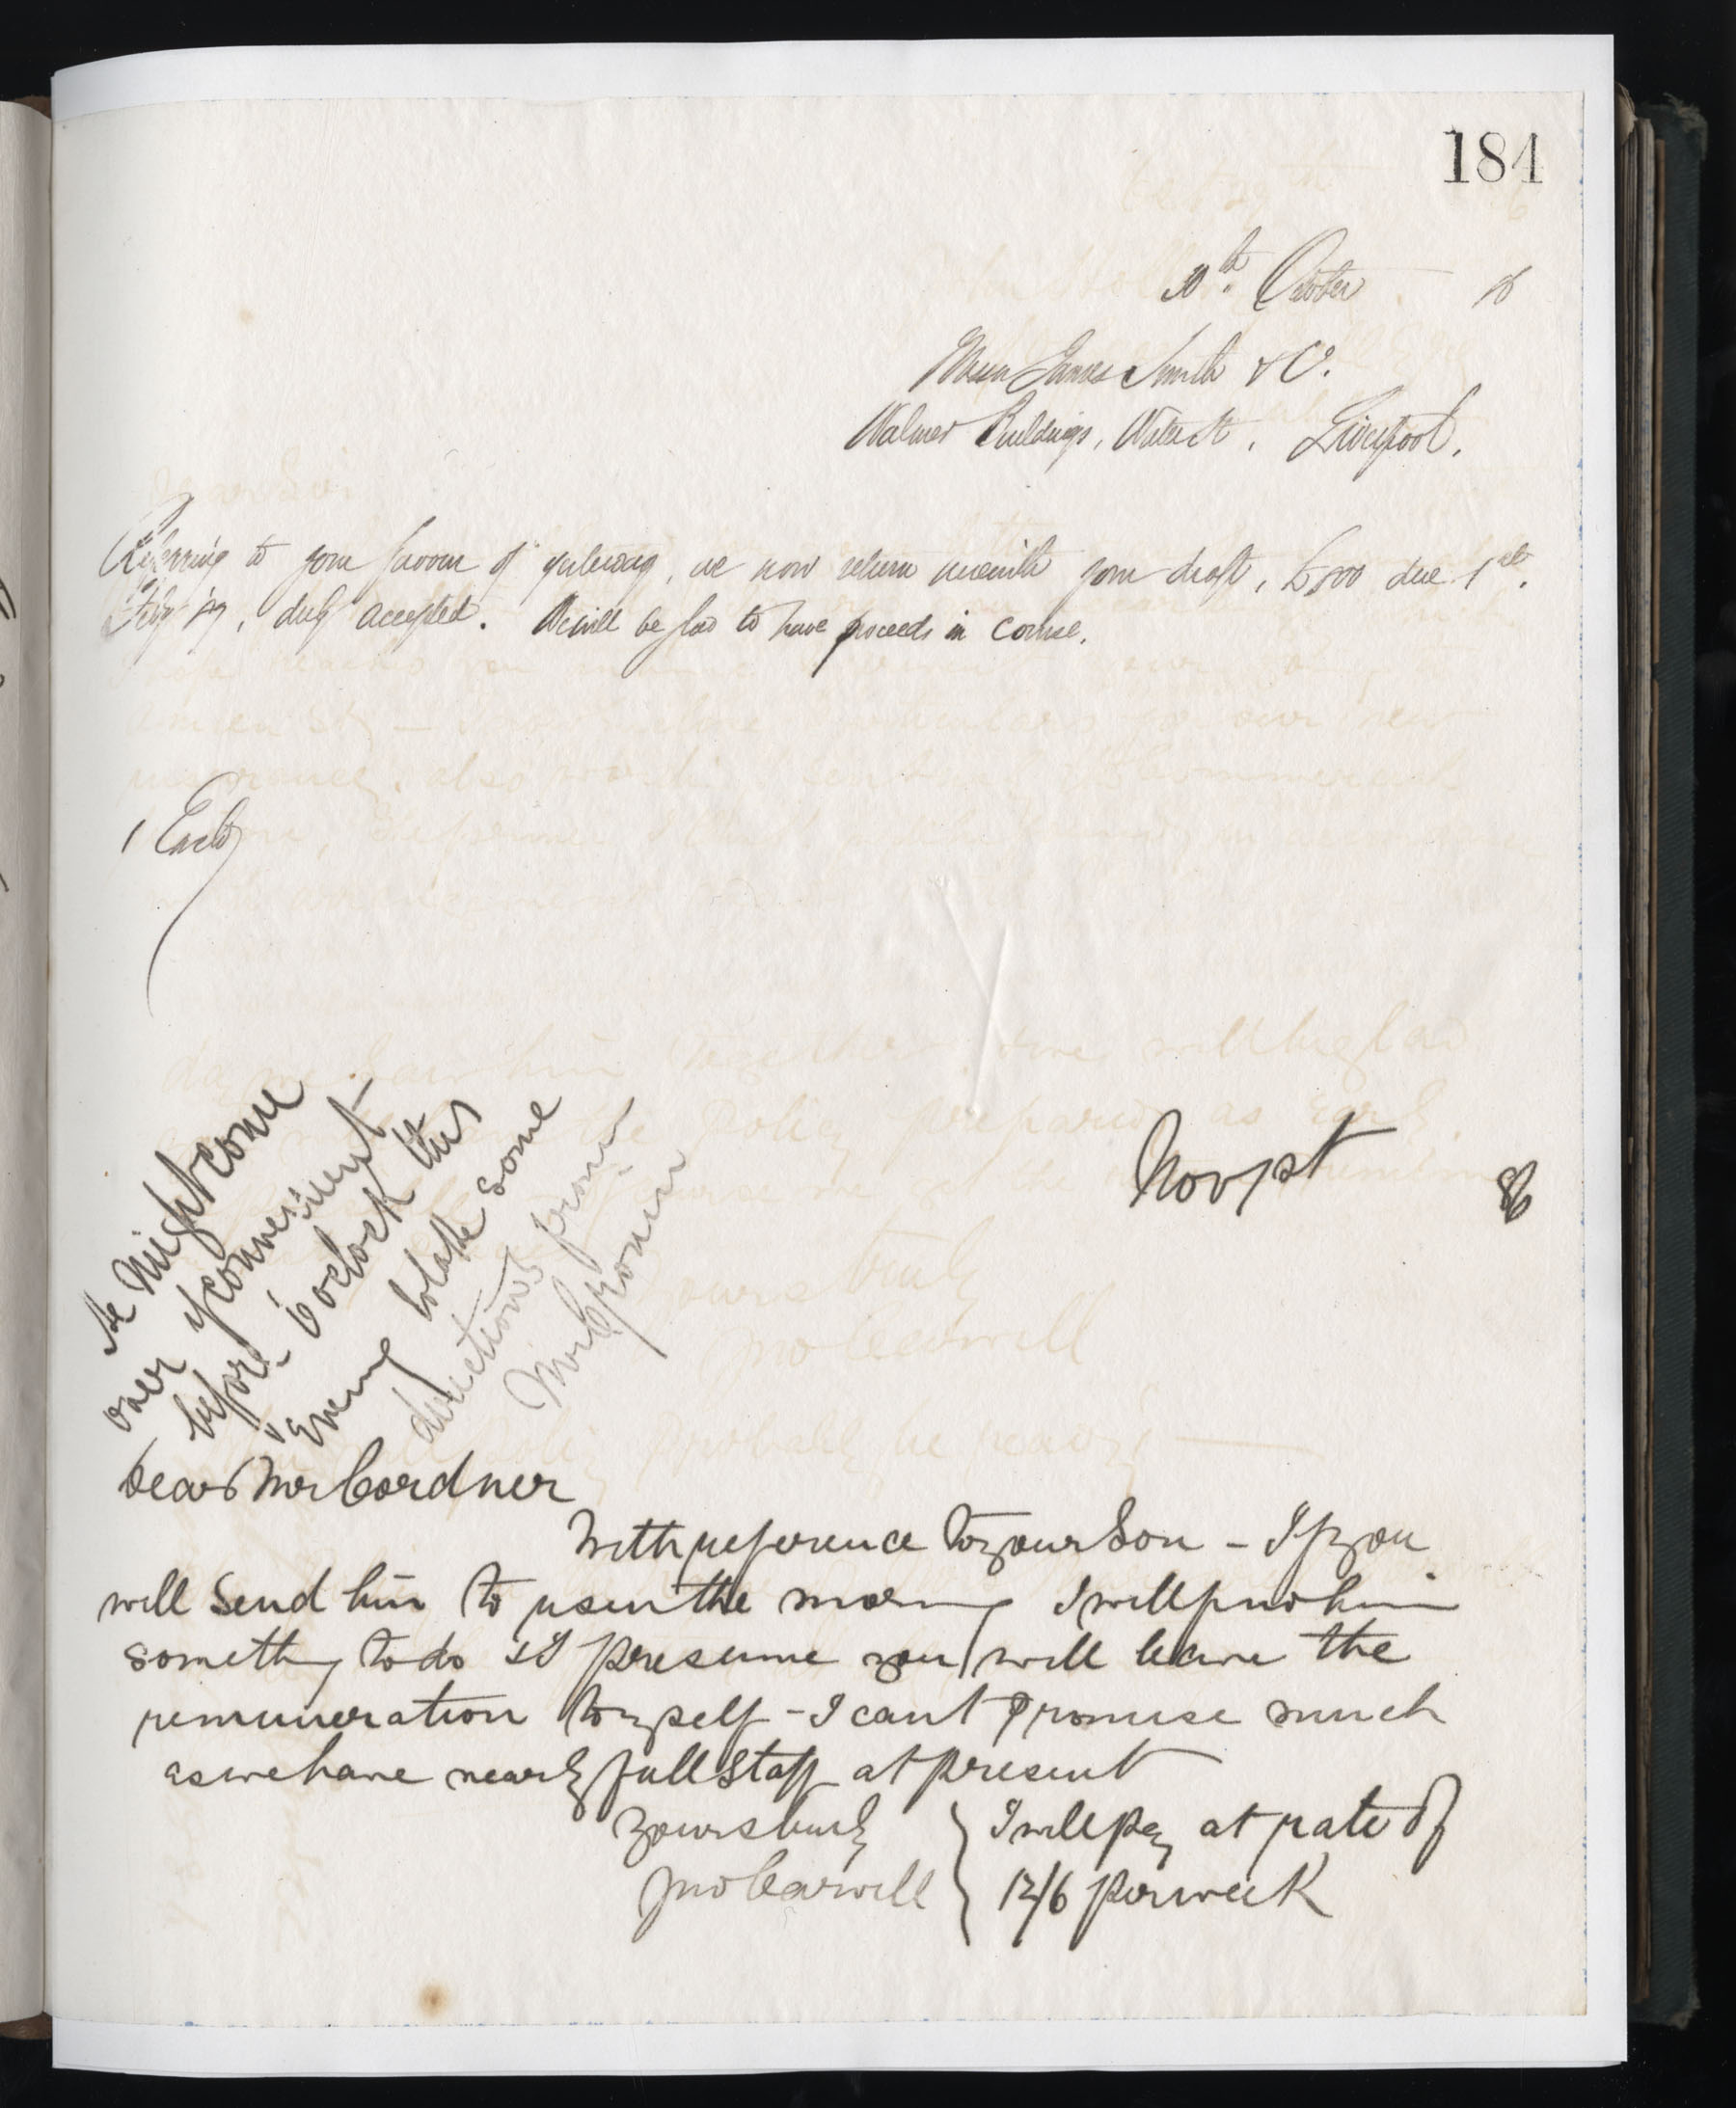 184
30th. October 86
Messrs James Smith & Co.
Walmer Buildings, Water St. Liverpool.
Referring to your favour of yesterday, we now return herewith your draft, £500 due 1st.
Feby, duly accepted. We will be glad to have proceeds in course.
1 Enclo
Nov 1st 86
He Might come
over if convenient
before 6 oclock this
Evening to take some
directions from
Mr
Dear Mr Cordner
With reference to your Son - If you
will Send him to us in the morning I will find him
something to do & I presume you will leave the
remuneration to myself - I cant Promise much
as we have nearly full Staff at Present
Yours truly
Jno Carwill
I will Pay at rate of
12/6 per week